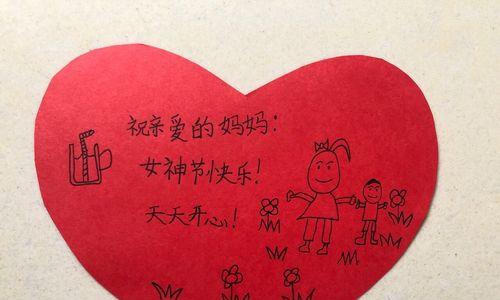 祝亲爱的妈妈:
女神节快乐!
天天开心!